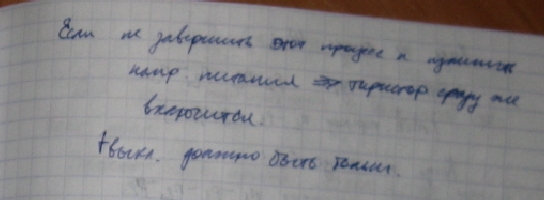 Если не завершить этот процесс и приложить
напр. питания тиристор сразу же
включится.
tвыкл. должно быть только.